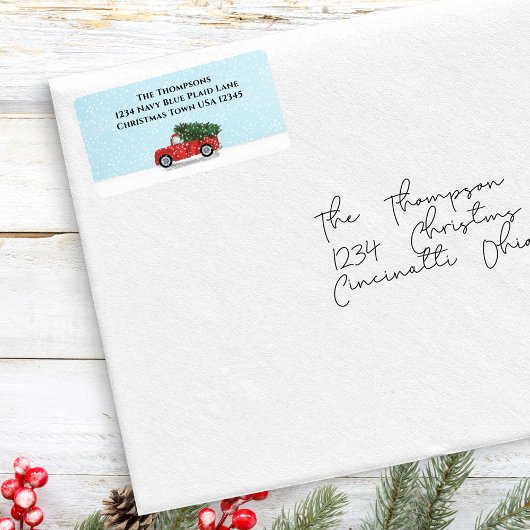 The Thompsons
1234 Navy Blue Plaid Lane
Christmas Town USA 12345
The Thompson
1234 Christms
Cincinatti Ohio